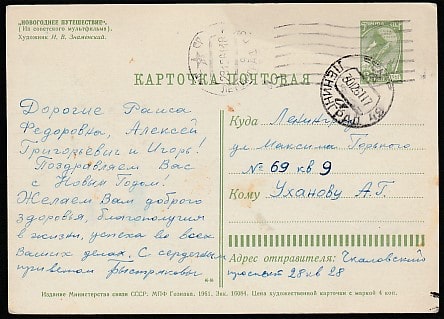 «НОВОГОДНЕЕ ПУТЕШЕСТВИЕ».
(Из советского мультфильма).
Художник И. В. Знаменский.
КАРТОЧКА ПОЧТОВАЯ
Дорогие Раиса
Федоровна, Алексей
Григорьевич и Игорь!
Поздравляем Вас
с Новым Годом!
Желаем Вам доброго
здоровья, благополучия
в жизни, успеха во всех
Ваших делах. С сердечным
приветом Быстряковы
Куда Ленинград
ул Максима Горького
№ 69 кв 9
Кому Уханову А.Г.
Адрес отправителя: Чкаловский
проспект 28 кв 28
Издание Министерства связи СССР. МПФ Гознака. 1961. Зак. 16084. Цена художественной карточки с маркой 4 коп.
ЛЕНИНГРАД
301261